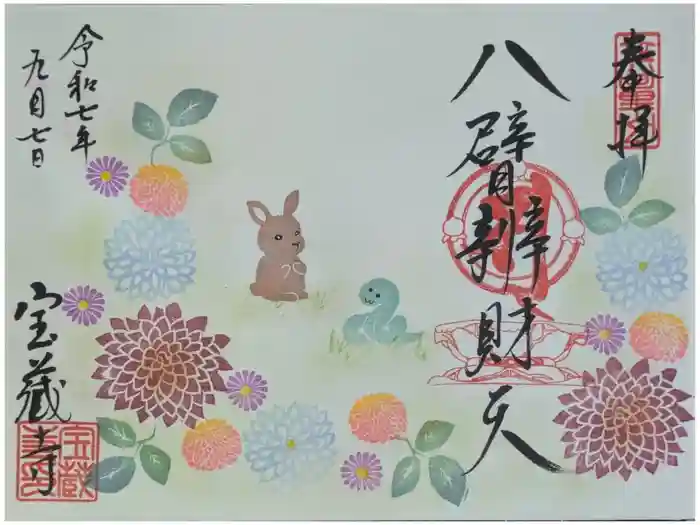 奉拝
八臂辨財天
令和七年
九月七日
宝蔵寺
宝蔵寺印